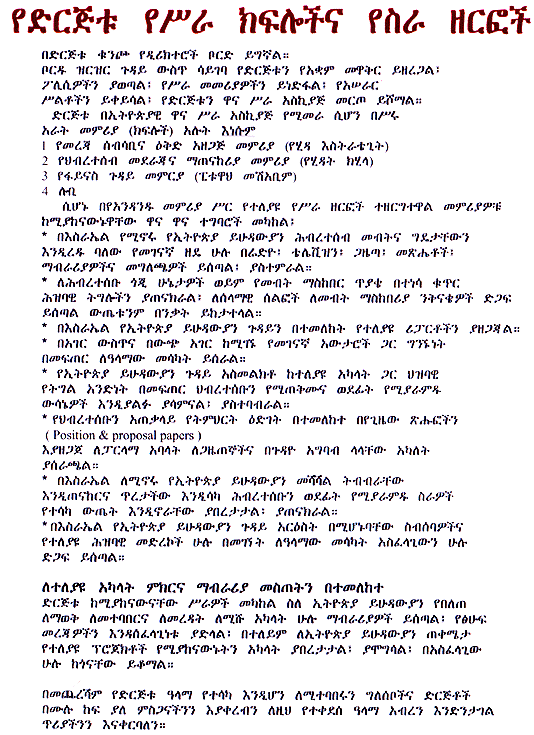 የድርጅቱ የሥራ ክፍሎችና የስራ ዘርፎች
በድርጅቱ ቁንጮ የዲሪክተሮች ቦርድ ይገኛል።
ቦርዱ ዝርዝር ጉዳይ ውስጥ ሳይገባ የድርጅቱን የአቋም መዋቅር ይዘረጋል፤
ፖሊሲዎችን ያወጣል፤ የሥራ መመሪያዎችን ይነድፋል፤ የአሠራር
ሥልቶችን ይቀይሳል፤ የድርጅቱን ዋና ሥራ አስኪያጅ መርጦ ይሾማል።
ድርጅቱ በኢትዮጵያዊ ዋና ሥራ አስኪያጅ የሚመራ ሲሆን በሥሩ
አራት መምሪያ (ክፍሎች) አሉት እነሱም
1 የመረጃ ሰብሳቢና ዕቅድ አዘጋጅ መምሪያ (የሂዳ እስትራቴጂት)
2 የህብረተሰብ መደራጃና ማጠናከሪያ መምሪያ (የሂዳት ክሂላ)
3 የፋይናስ ጉዳይ መምርያ (ፒቱዋህ መሽአቢም)
4 ሎቢ
ሲሆኑ በየአንዳንዱ መምሪያ ሥር የተለያዩ የሥራ ዘርፎች ተዘርግተዋል መምሪያዎቹ
ከሚያከናውኑዋቸው ዋና ዋና ተግባሮች መካከል፤
* በእስራኤል የሚኖሩ የኢትዮጵያ ይሁዳውያን ሕብረተሰብ መብትና ግዴታቸውን
እንዲረዱ ባለው የመገናኛ ዘዴ ሁሉ በራድዮ፤ ቴሌቪዝን፤ ጋዜጣ፤ መጽሔቶች፤
ማብራሪያዎችና መግለጫዎች ይሰጣል፤ ያስተምራል።
* ለሕብረተሰቡ ጎጂ ሁኔታዎች ወይም የመብት ማስከበር ጥያቄ በተነሳ ቁጥር
ሕዝባዊ ትግሎችን ያጠናክራል፤ ለሰላማዊ ሰልፎች ለመብት ማስከበሪያ ንቅናቄዎች ድጋፍ
ይሰጣል ውጤቱንም በንቃት ይከታተላል።
* በእስራኤል የኢትዮጵያ ይሁዳውያን ጉዳይን በተመለከተ የተለያዩ ሪፖርቶችን ያዘጋጃል።
* በአገር ውስጥና በውጭ አገር ከሚገኙ የመገናኛ አውታሮች ጋር ግንኙነት
በመፍጠር ለዓላማው መሳካት ይሰራል።
* የኢትዮጵያ ይሁዳውያን ጉዳይ አስመልክቶ ከተለያዩ አካላት ጋር ህዝባዊ
የትግል አንድነት በመፍጠር ህብረተሰቡን የሚጠቅሙና ወደፊት የሚያራምዱ
ውሳኔዎች እንዲያልፉ ያሳምናል፤ ያስተባብራል።
* የህብረተሰቡን አጠቃላይ የትምህርት ዕድገት በተመለከተ በየጊዜው ጽሑፎችን
( Position & proposal papers )
እያዘጋጀ ለፓርላማ አባላት ለጋዜጠኞችና በጉዳዮ አግባብ ላላቸው አካላት
ያሰራጫል።
* በእስራኤል ለሚኖሩ የኢትዮጵያ ይሁዳውያን መሻሻል ትብብራቸው
እንዲጠናከርና ጥረታቸው እንዲሳካ ሕብረተሰቡን ወደፊት የሚያራምዱ ስራዎች
የተሳካ ውጤት እንዲኖራቸው ያበረታታል፤ ያጠናክራል።
* በእስራኤል የኢትዮጵያ ይሁዳውያን ጉዳይ አርዕስት በሚሆኑባቸው ስብሰባዎችና
የተለያዩ ሕዝባዊ መድረኮች ሁሉ በመገኘት ለዓላማው መሳካት አስፈላጊውን ሁሉ
ድጋፍ ይሰጣል።
ለተለያዩ አካላት ምክርና ማብራሪያ መስጠትን በተመለከተ
ድርጅቱ ከሚያከናውናቸው ሥራዎች መካከል ስለ ኢትዮጵያ ይሁዳውያን የበለጠ
ለማወቅ ለመተባበርና ለመረዳት ለሚሹ አካላት ሁሉ ማብራሪያዎች ይሰጣል፤ የፅሁፍ
መረጃዎችን እንዳስፈላጊነቱ ያድላል፤ በተለይም ለኢትዮጵያ ይሁዳውያን ጠቀሜታ
የተለያዩ ፕሮጀክቶች የሚያከናውኑትን አካላት ያበረታታል፤ ያሞግሳል፤ በአስፈላጊው
ሁሉ ከጎናቸው ይቆማል።
በመጨረሻም የድርጅቱ ዓላማ የተሳካ እንዲሆን ለሚተባበሩን ግለሰቦችና ድርጅቶች
በሙሉ ከፍ ያለ ምስጋናችንን እያቀረብን ለዚህ የተቀደሰ ዓላማ አብረን እንድንታገል
ጥሪያችንን እናቀርባለን።